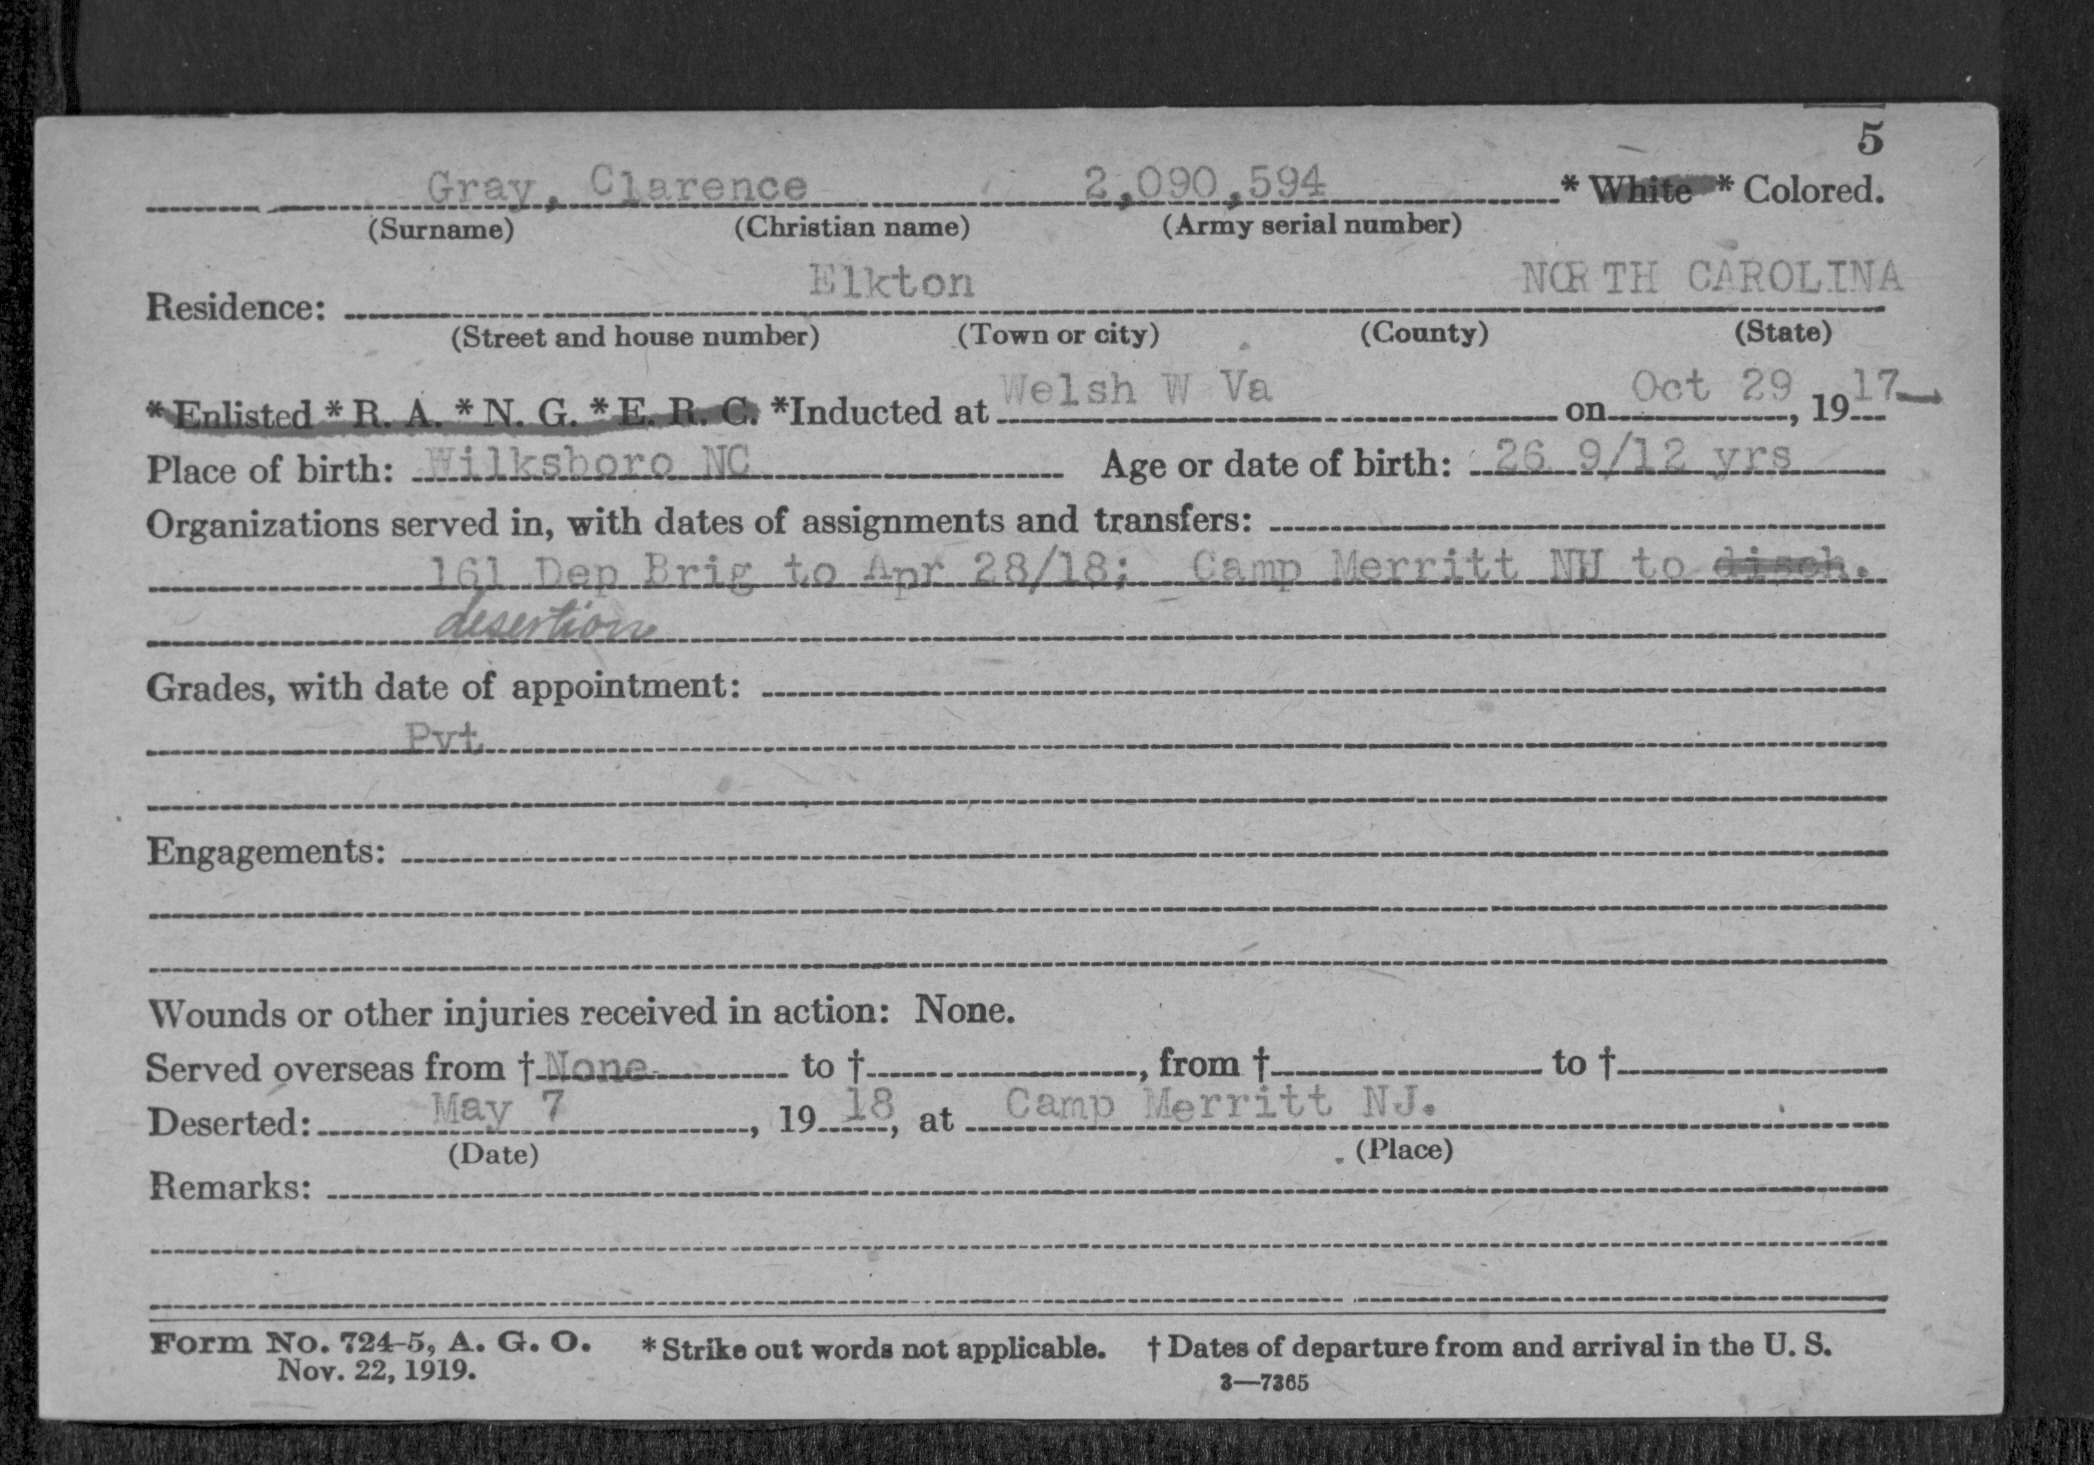 5
Gray, Clarence 2,090,594 * White * Colored.
(Surname) (Christian name) (Army serial number)
Elkton NORTH CAROLINA
Residence:
(Street and house number) (Town or city) (County) (State)
* Enlisted * R. A. * N. G. * E. R. C. *Inducted at Welsh W Va on Oct 29, 1917
Place of birth: Wilksboro NC Age or date of birth: 26 9/12 yrs
Organizations served in, with dates of assignments and transfers:
161 Dep Brig to Apr 28/18; Camp Merritt NH to disch.
desertion
Grades, with date of appointment:
Pvt
Engagements:
Wounds or other injuries received in action: None.
Served overseas from † None to †, from † to †
Deserted: May 7, 19 18, at Camp Merritt NJ.
(Date) (Place)
Remarks:
Form No. 724-5, A. G. O. * Strike out words not applicable. † Dates of departure from and arrival in the U. S.
Nov. 22, 1919. 3—7365